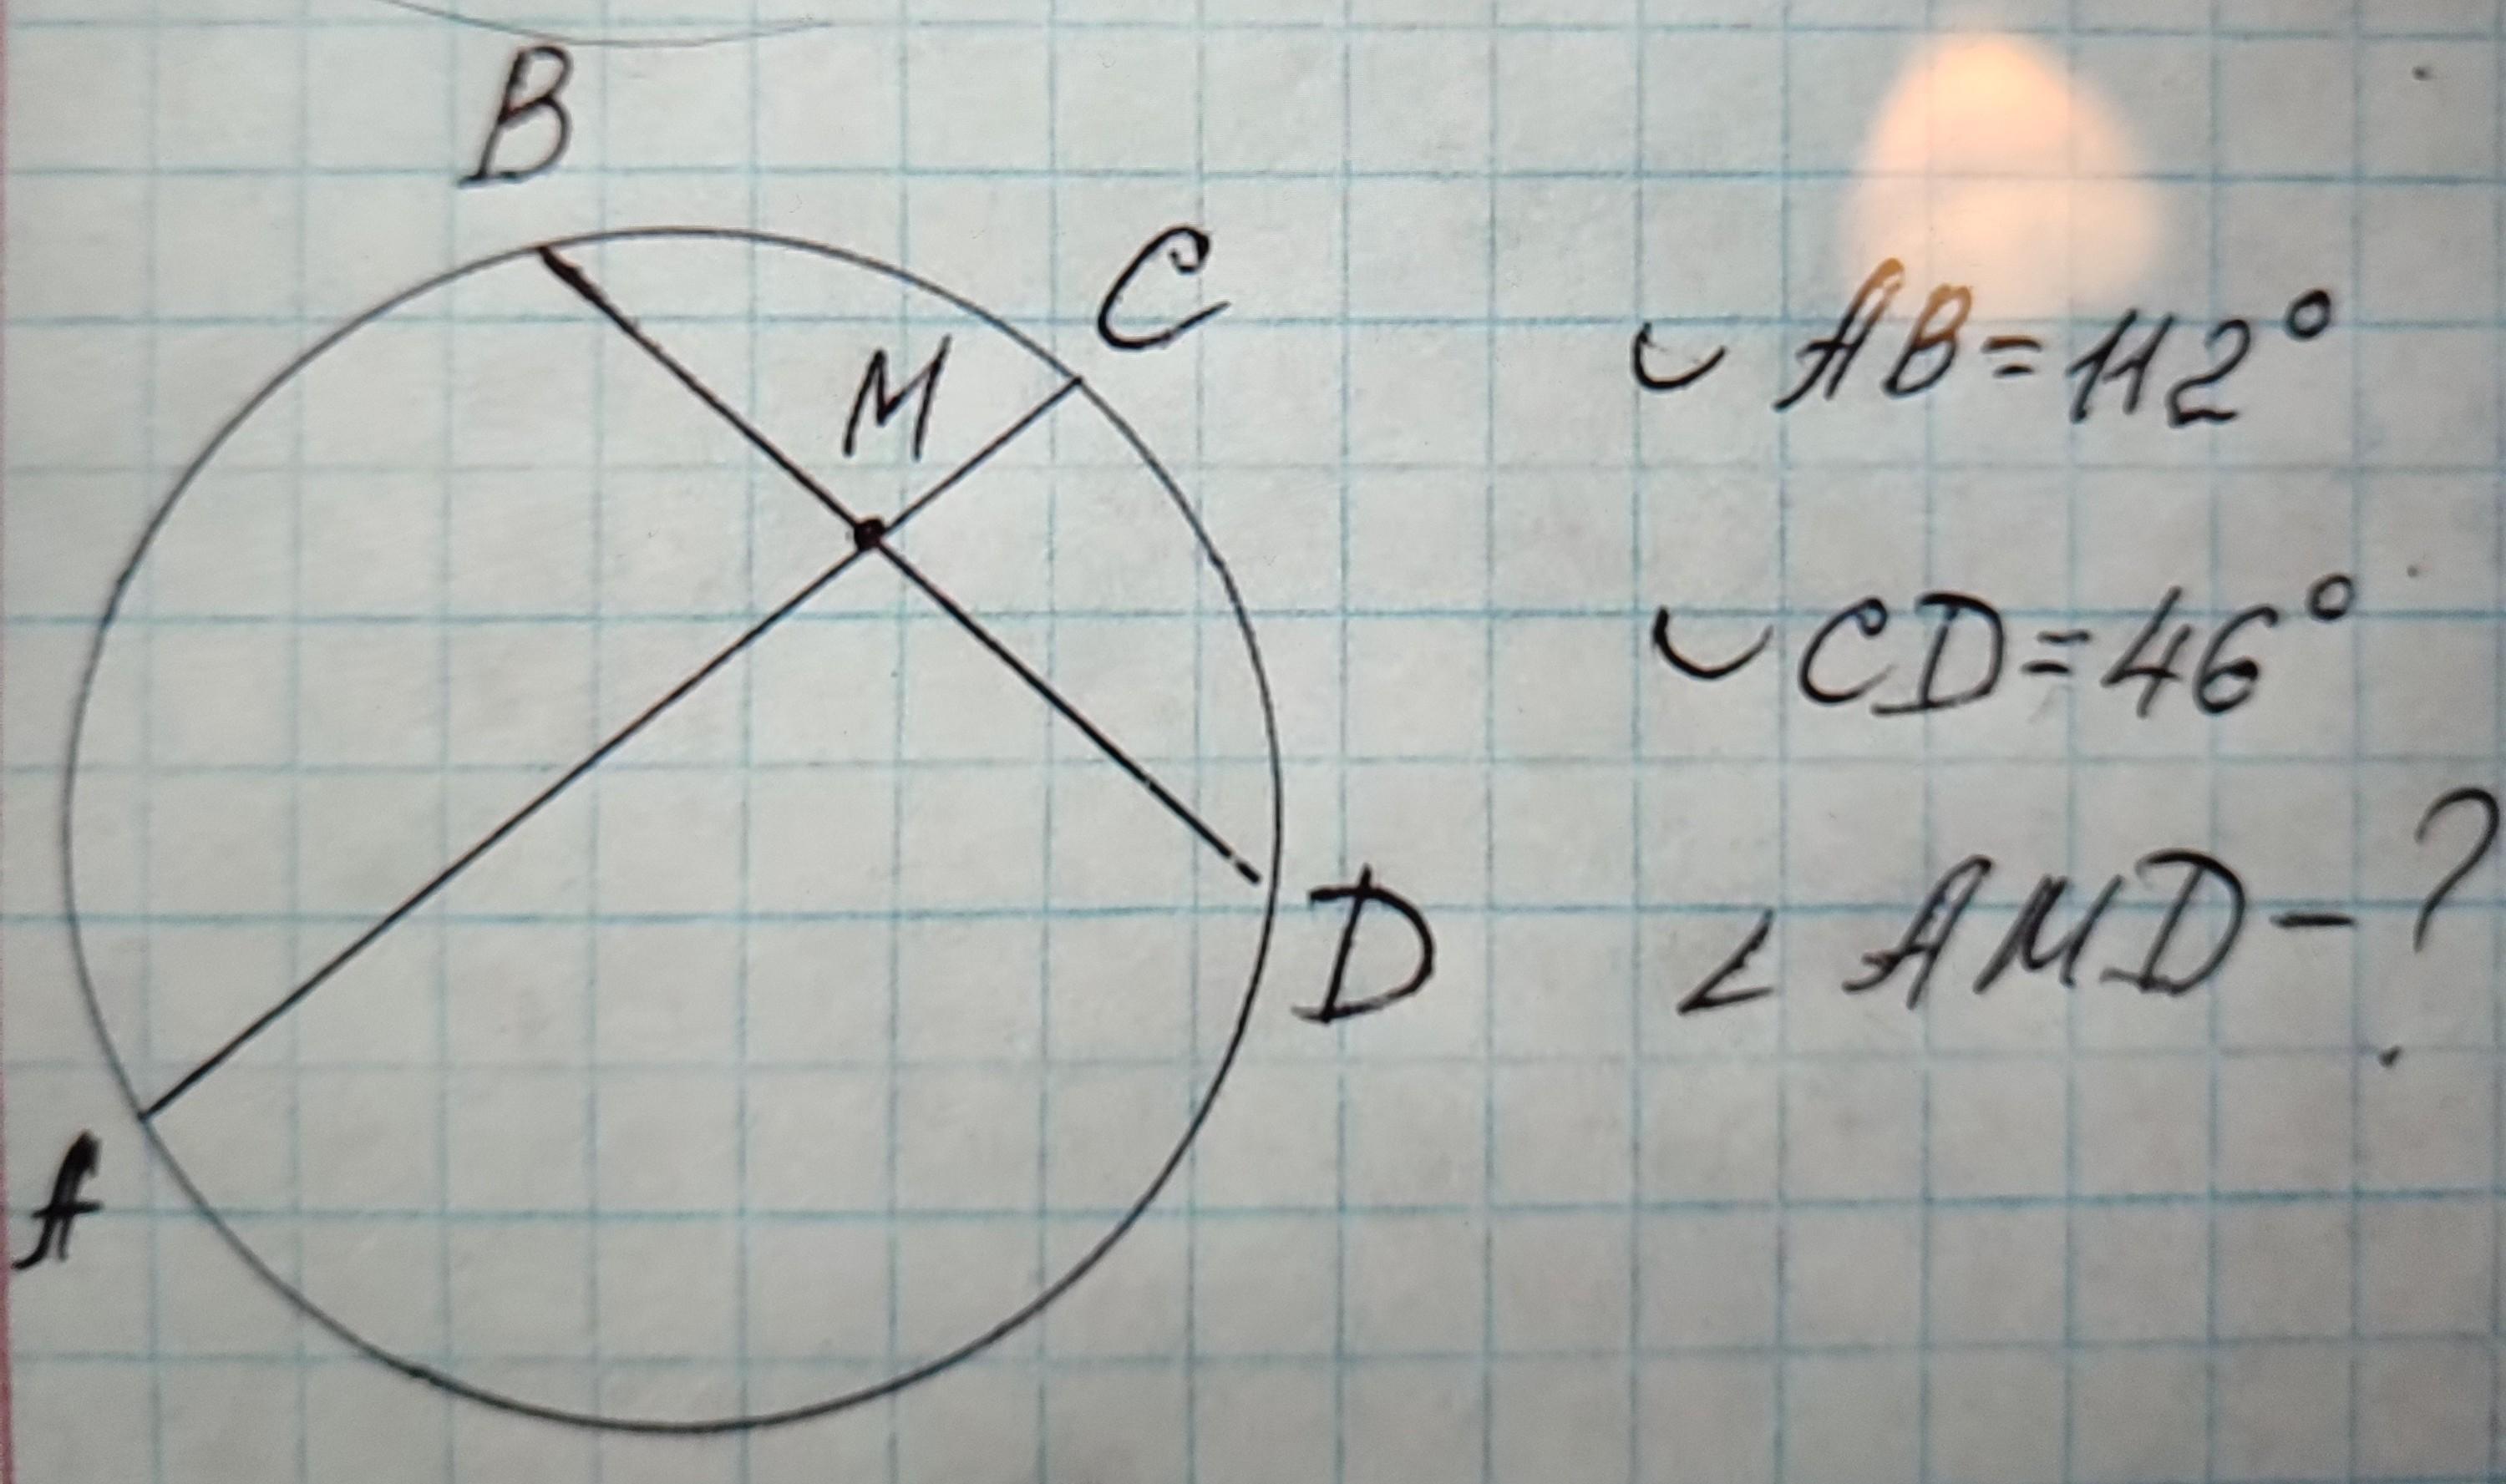 B
C
M
D
A
◡ AB=112°
◡ CD=46°
∠ AMD-?